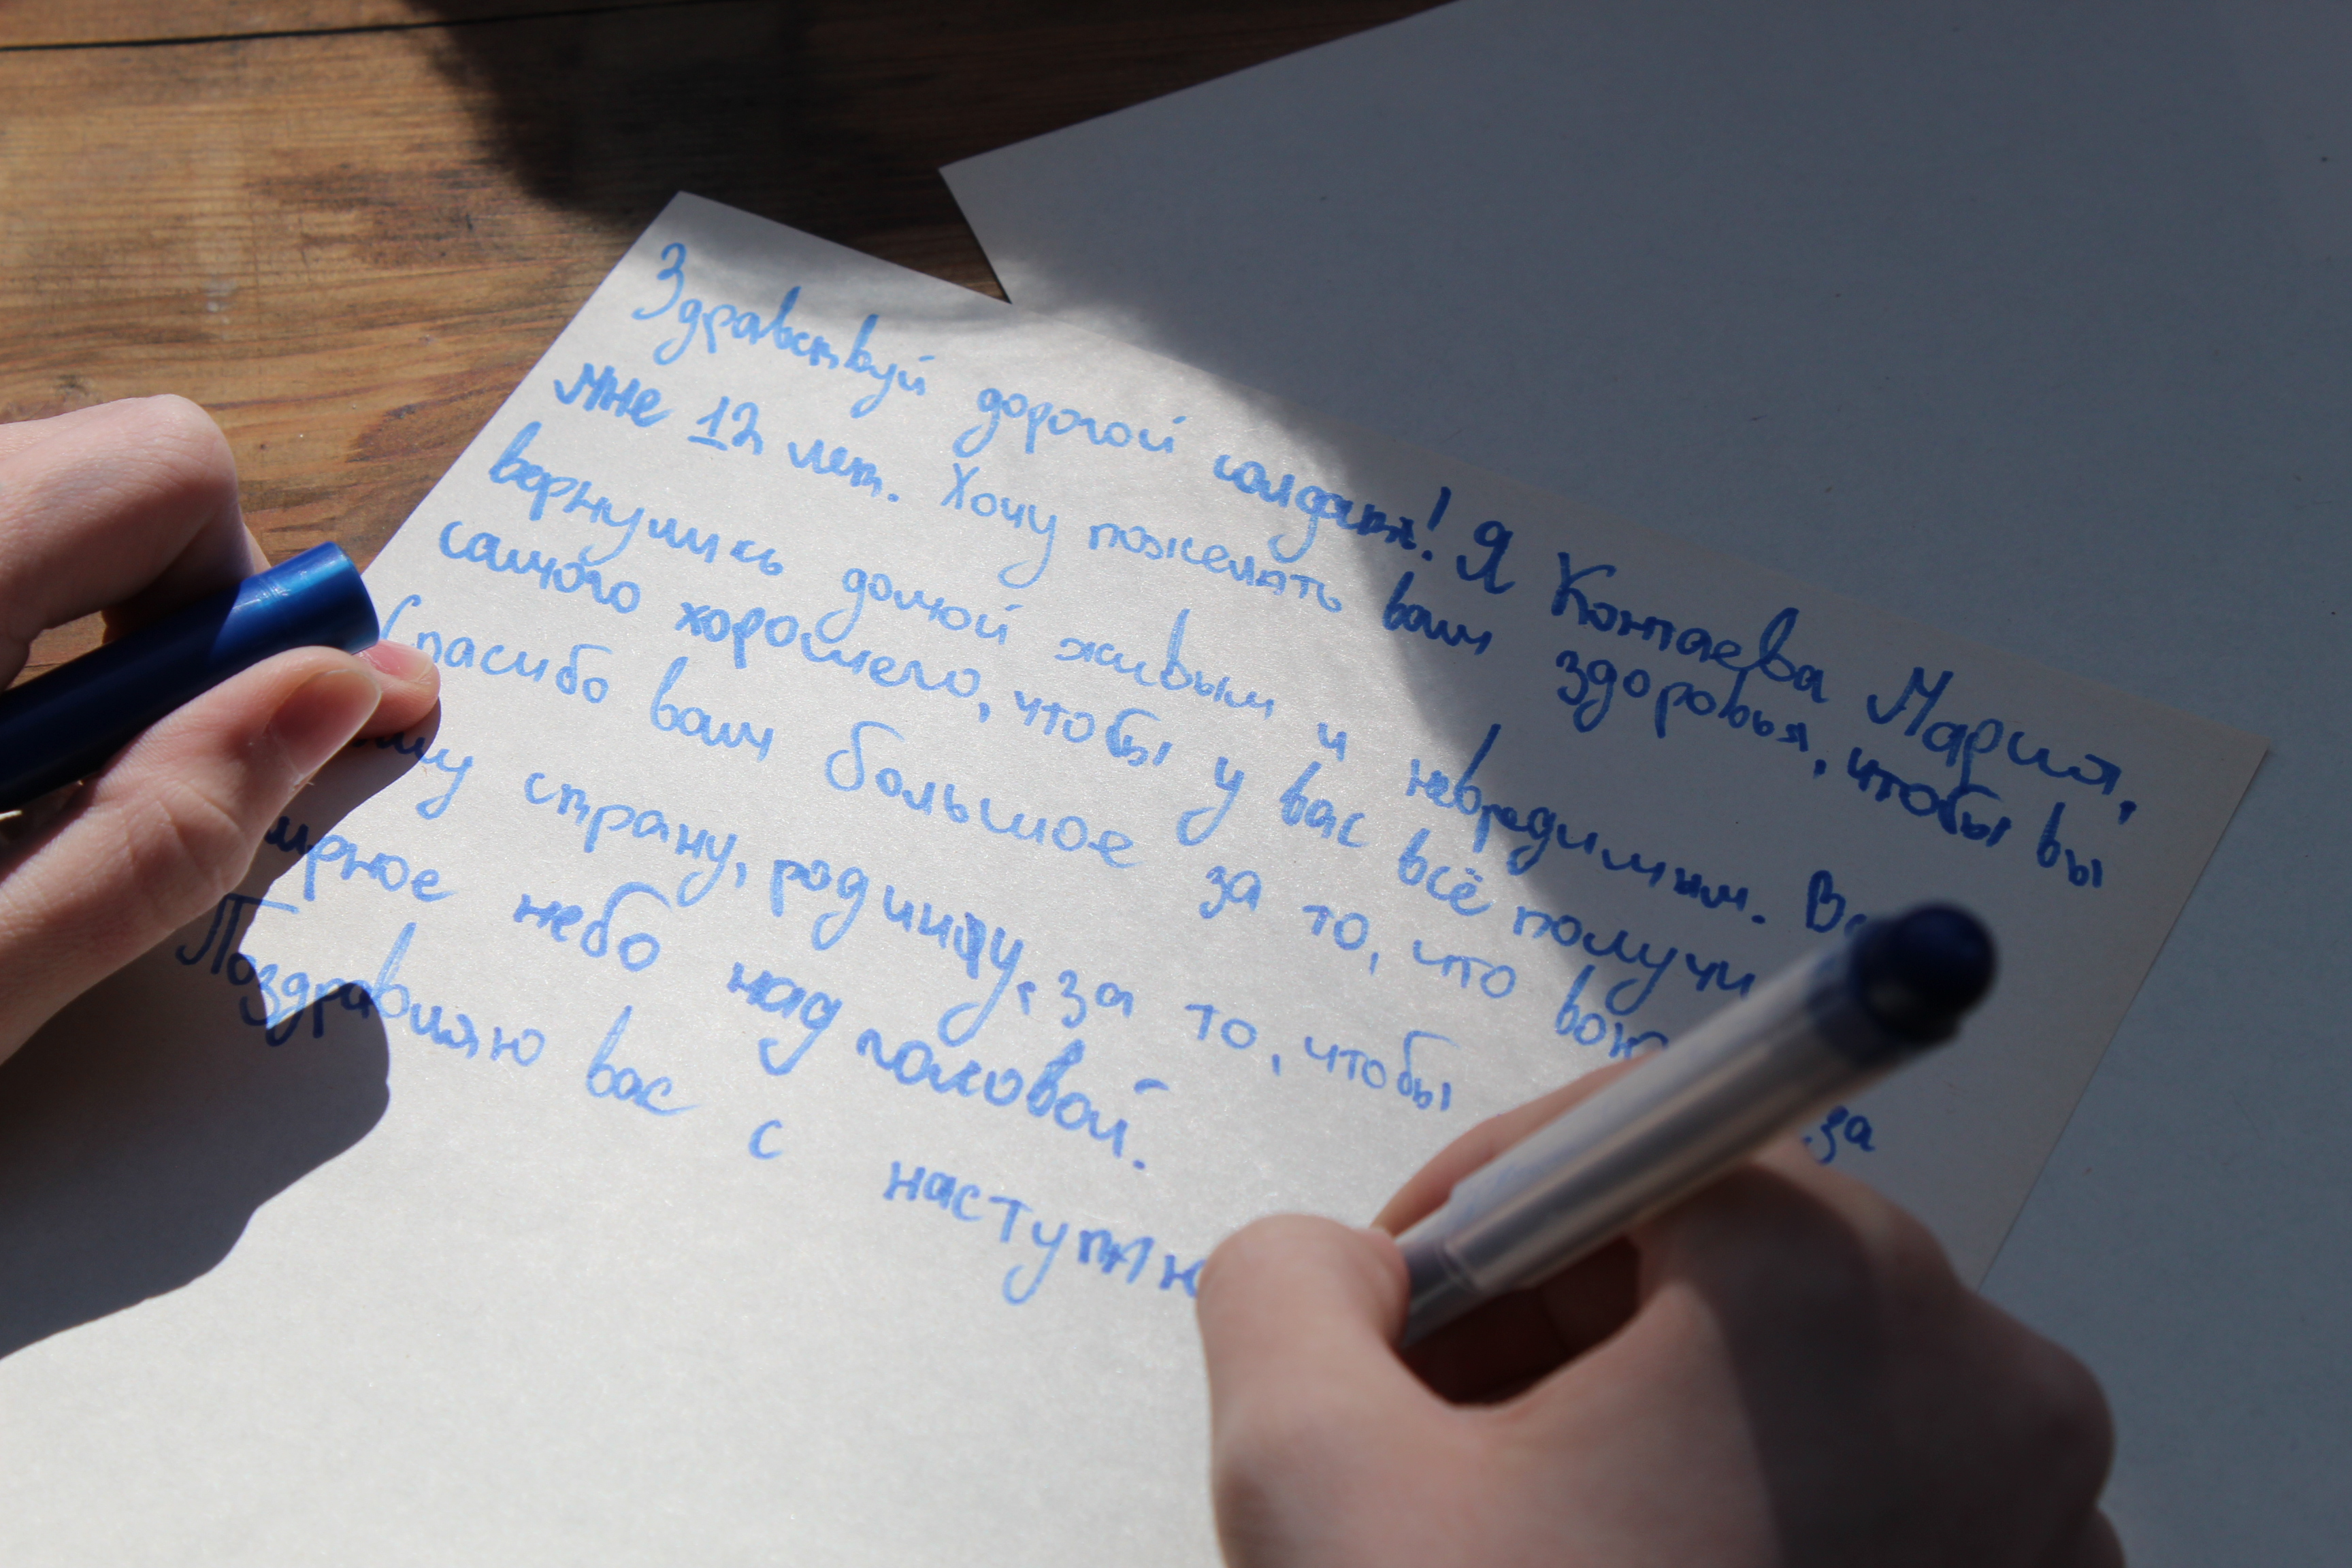 Здравствуй дорогой солдат! Я Контаева Мария,
мне 12 лет. Хочу пожелать вам здоровья, чтобы вы
вернулись домой живым и невредимым. 
самого хорошего, чтобы у вас всё
Спасибо вам большое за то, что
страну, родину, за то, чтобы за
мирное небо над головой.
Поздравляю вас с